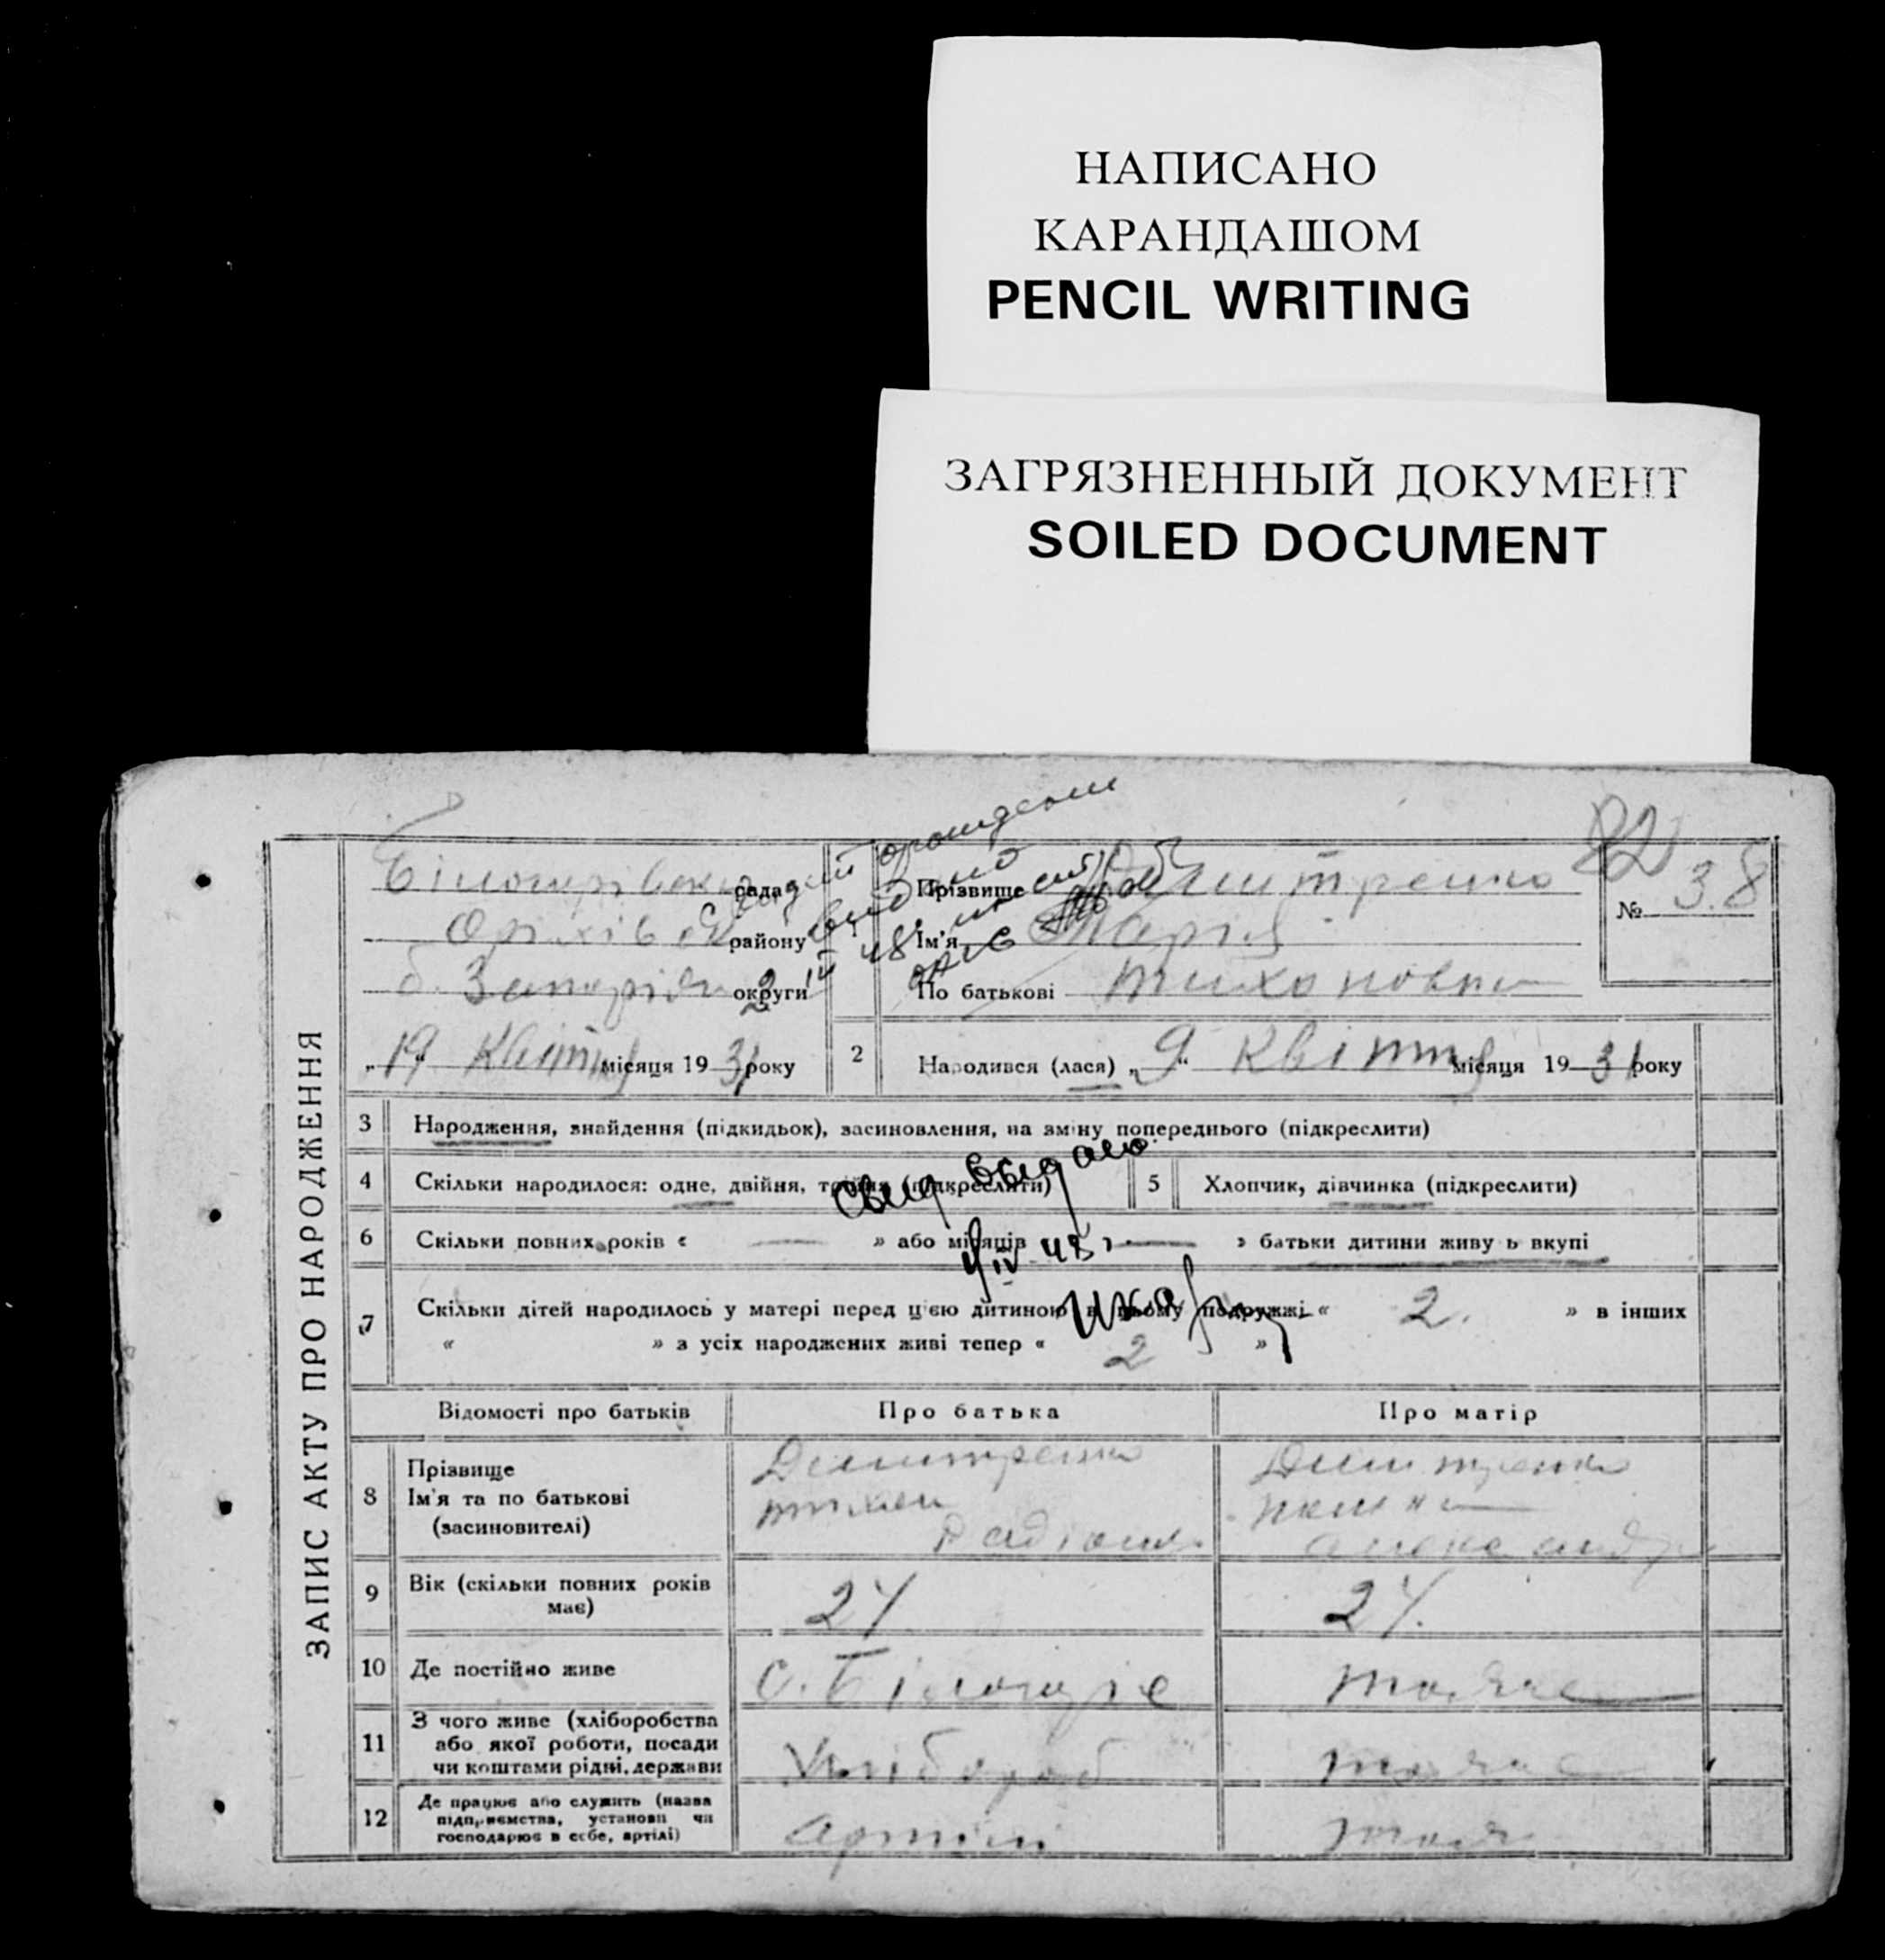 НАПИСАНО
КАРАНДАШОМ
PENCIL WRITING
ЗАГРЯЗНЕННЫЙ ДОКУМЕНТ
SOILED DOCUMENT
ЗАПИС АКТУ ПРО НАРОДЖЕННЯ
82
№ 38
рада
Оріхівськ району
б. Запоріжж округи
„19“ Квітня місяця 1931 року
Прізвище Димитренко
Ім'я Марія
По батькові Тихоновна
2 Народився (лася) „9“ Квітня місяця 1931 року
3 Народження, знайдення (підкидьок), засиновлення, на зміну попереднього (підкреслити)
4 Скільки народилося: одне, двійня, трійня (підкреслити) 5 Хлопчик, дівчинка (підкреслити)
свид выдано
6 Скільки повних років « — » або місяців — » батьки дитини живуть вкупі
IV 48 г
7 Скільки дітей народилось у матері перед цією дитиною в цьому подружжі « 2. » в інших
« » з усіх народжених живі тепер « 2 »
Відомості про батьків Про батька Про матір
8 Прізвище Димитренко Димитренко
Ім'я та по батькові Тихон
(засиновителі)
9 Вік (скільки повних років має) 24 24.
10 Де постійно живе с. Білогірје тояже
11 З чого живе (хліборобства або якої роботи, посади чи коштами рідні, держави Хлібороб тояже
12 Де працює або служить (назва підприємства, установи чи господарює в себе, артілі) Артілі тояж